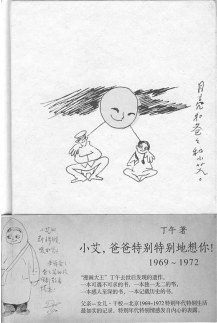 月亮和爸爸和小艾
丁午 著
小艾，爸爸特别特别地想你！
1969－1972
“漫画大王”丁午去世后发现的遗作。
一本可遇不可求的书，一本独一无二的书，
一本感人至深的书，一本记载历史的书。
父亲—女儿·干校—北京1969－1972特别年代特别生活
最如实的记录，特别年代特别情感发自内心的表露。